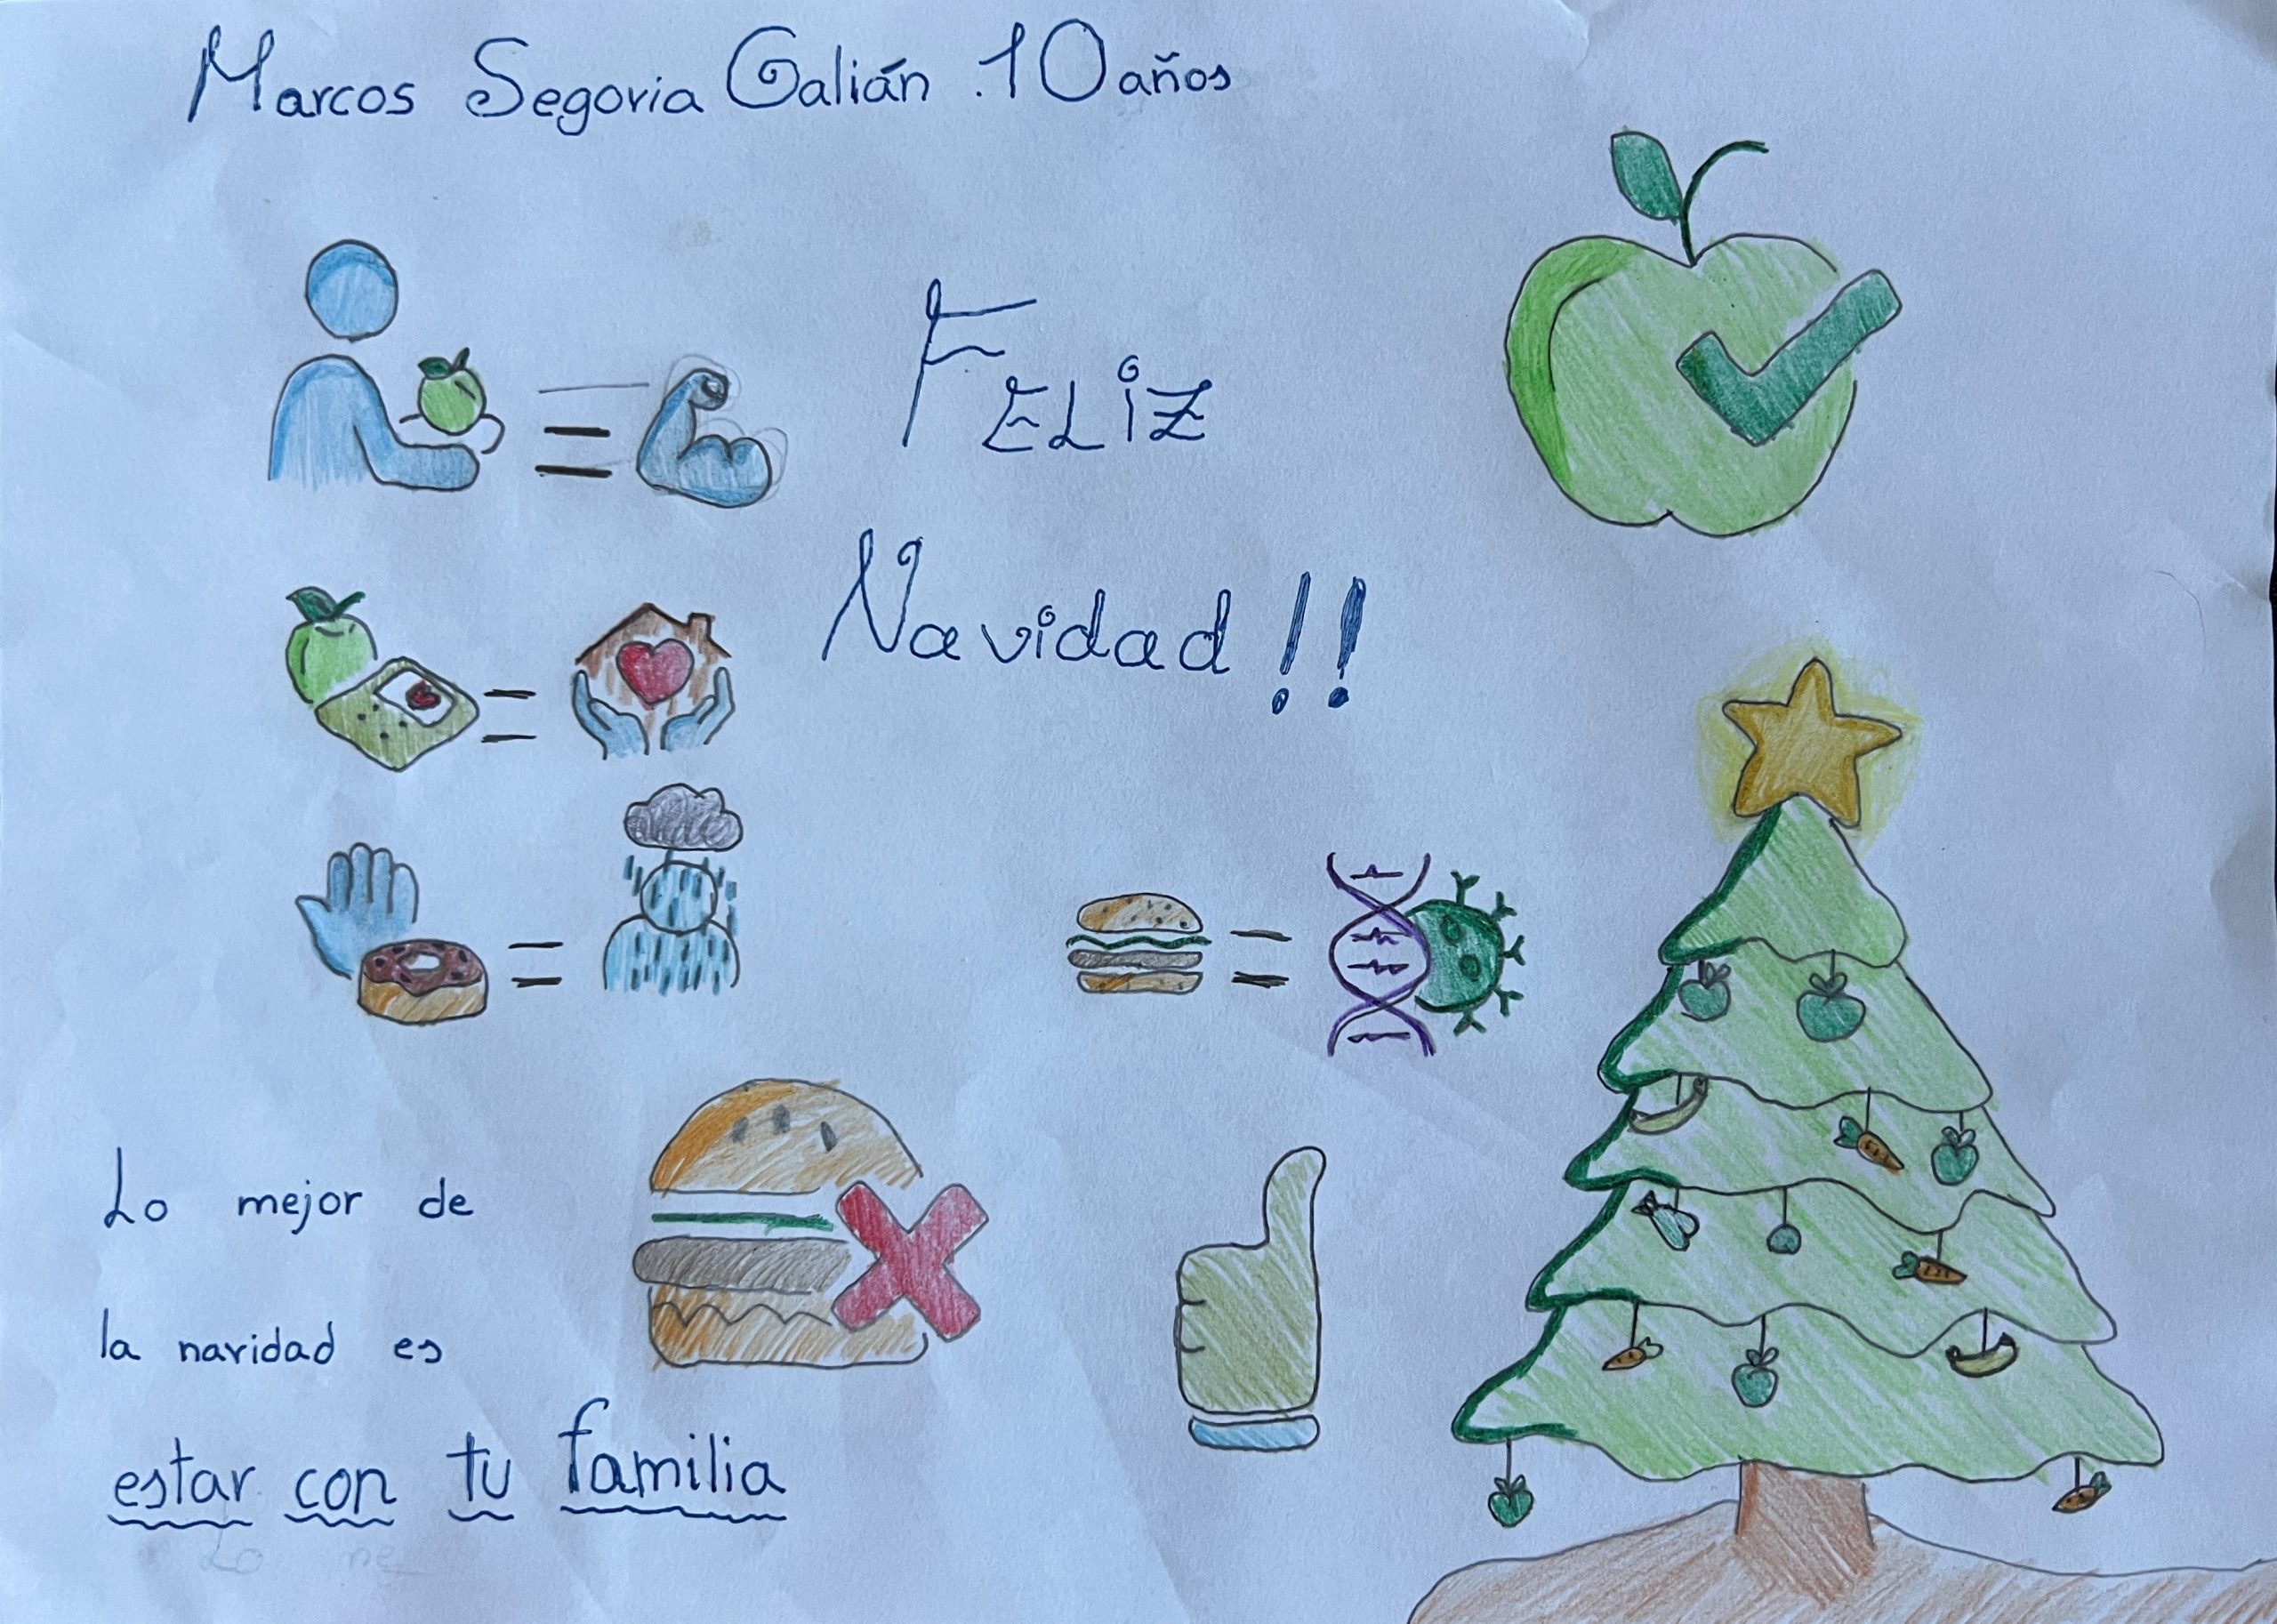 Marcos Segovia Galián. 10 años
FELIZ
Navidad!!
Lo mejor de
la navidad es
estar con tu familia
Lo me